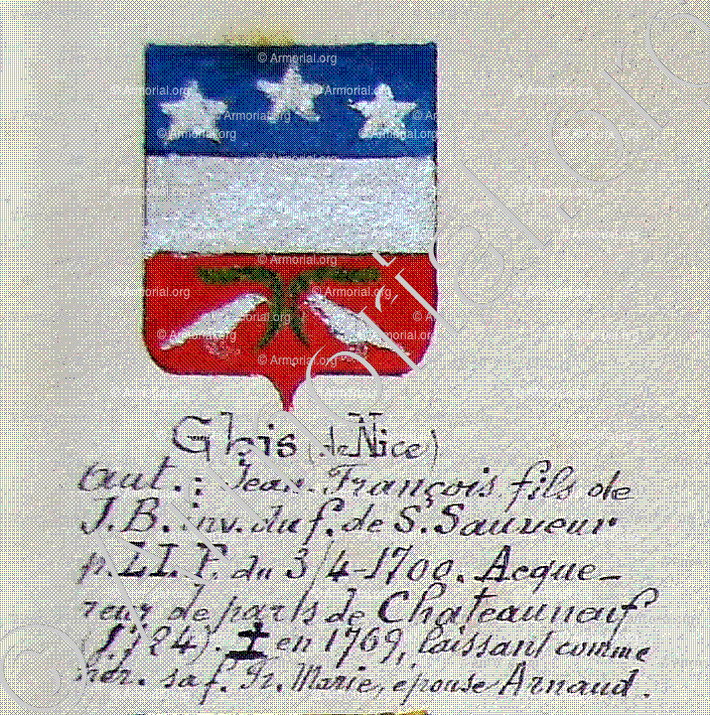 Ghis (de Nice)
Aut.: Jean-François fils de
J.B. inv. du f. de S. Sauveur
du 3/4-1700. Acque-
reur de parts de Chateauneuf
(1724). ‡ en 1769, laissant comme
sa f. Fr. Marie, epouse Arnaud.
© Armorial.org